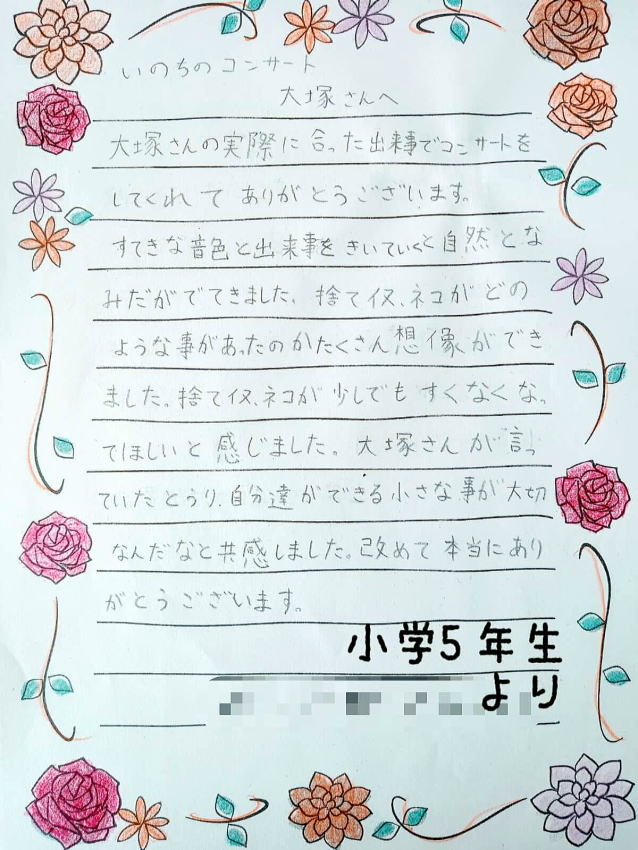 いのちのコンサート
大塚さんへ
大塚さんの実際に合った出来事でコンサートを
してくれてありがとうございます。
すてきな音色と出来事をきいていくと自然とな
みだがでてきました。捨てイヌ、ネコがどの
ような事があったのかたくさん想像ができ
ました。捨てイヌ、ネコが少しでもすくなくなっ
てほしいと感じました。大塚さんが言っ
ていたとうり、自分達ができる小さな事が大切
なんだなと共感しました。改めて本当にあり
がとうございます。
小学5年生
より